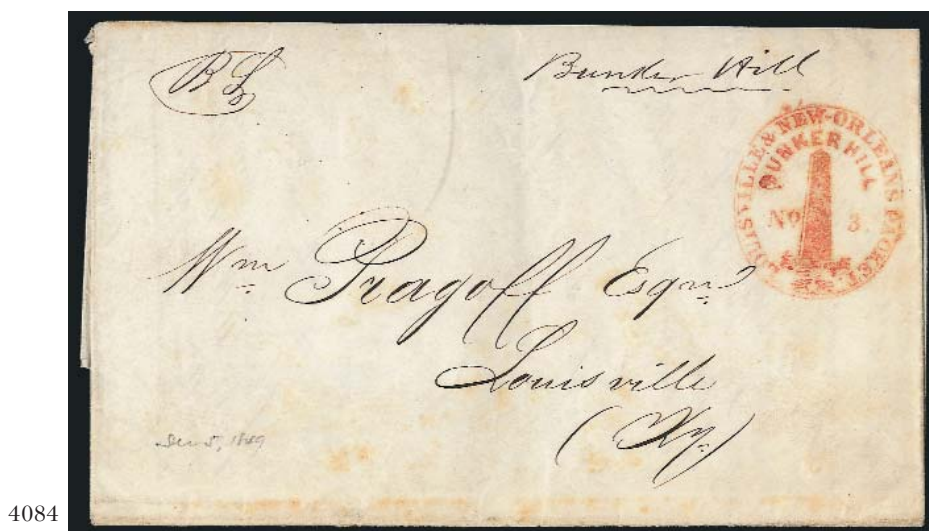 BL
Bunker Hill
LOUISVILLE & NEW-ORLEANS PACKET.
BUNKER HILL
No 3.
Wm Pragoff Esqr
Louisville
(Ky)
Dec 5, 1849
4084